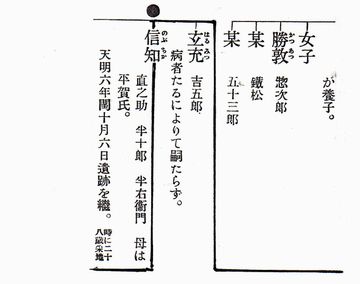 が養子。
女子
勝敦 かつあつ 惣次郎
某 鐵松
某 五十三郎
玄充 はるみつ 吉五郎
病者たるによりて嗣たらず。
信知 のぶちか
直之助 半十郎 半右衞門 母は
平賀氏。
天明六年閏十月六日遺跡を繼。時に二十八歳采地